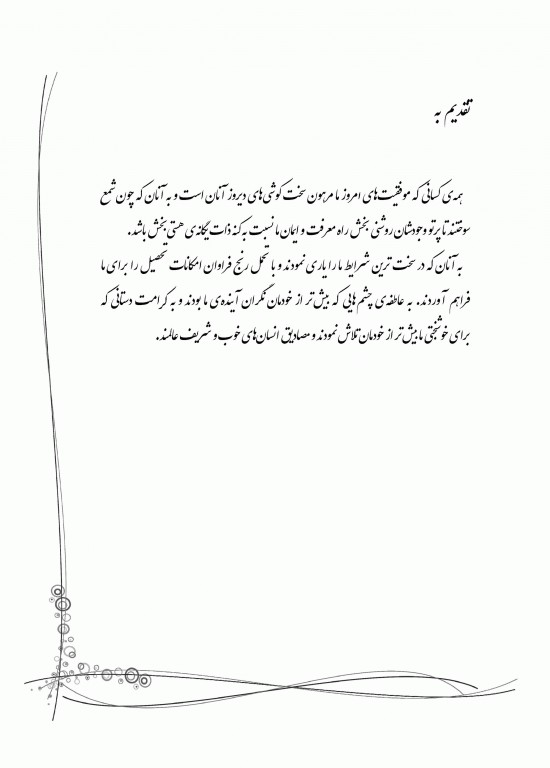 تقدیم به
همه‌ی کسانی که موفقیت‌های امروز ما مرهون سخت‌کوشی‌های دیروز آنان است و به آنان که چون شمع
سوختند تا پرتو وجودشان روشنی بخش راه معرفت و ایمان ما نسبت به کنه ذات یگانه‌ی هستی بخش باشد.
به آنان که در سخت ترین شرایط ما را یاری نمودند و با تحمل رنج فراوان امکانات تحصیل را برای ما
فراهم آوردند. به عاطفه‌ی چشم‌هایی که بیش‌تر از خودمان نگران آینده‌ی ما بودند و به کرامت دستانی که
برای خوشبختی ما بیش‌تر از خودمان تلاش نمودند و مصادیق انسان‌های خوب و شریف عالمند.